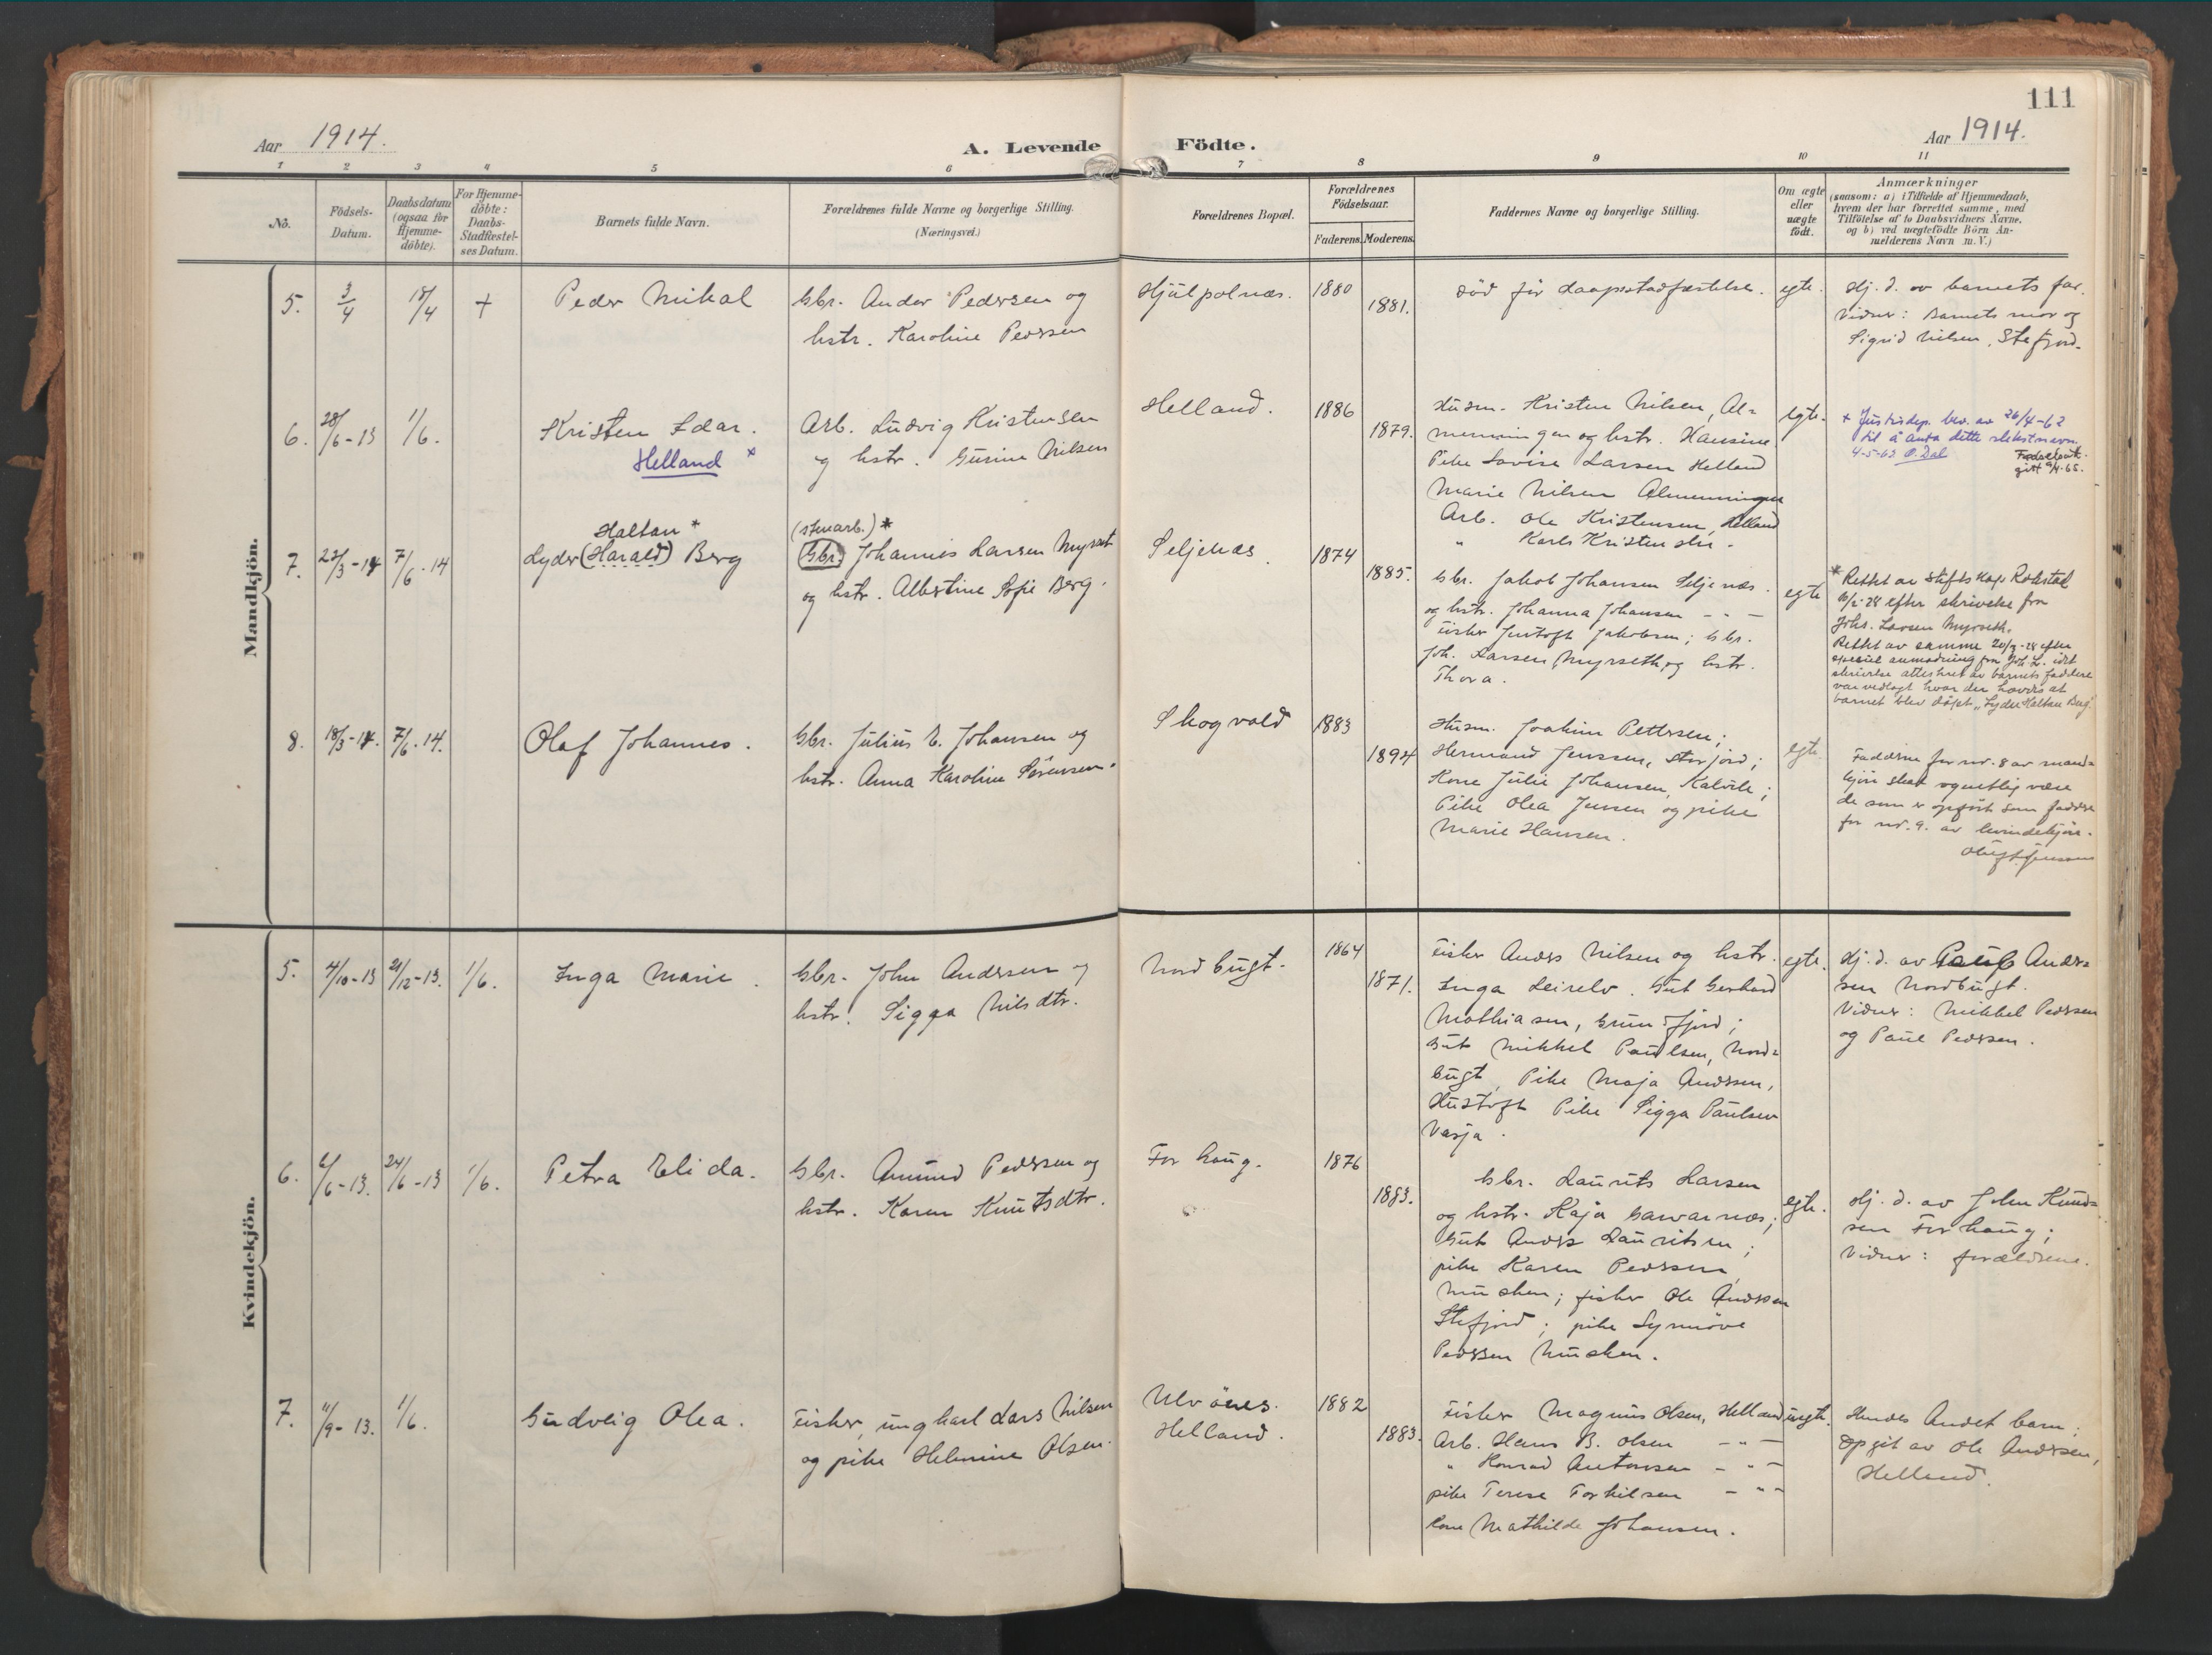 111
Aar 1914.
A. Levende Födte.
Aar 1914.
1 2 3 4 5 6 7 8 9 10 11
No.
Födsels-
Datum.
Daabsdatum
(ogsaa för
Hjemme-
döbte).
For Hjemme-
döbte:
Daabs-
Stadfæstel-
ses Datum.
Barnets fulde Navn.
Forældrenes fulde Navne og borgerlige Stilling.
(Næringsvei.)
Forældrenes Bopæl.
Forældrenes
Födselsaar.
Faderens. Moderens.
Faddernes Navne og borgerlige Stilling.
Om ægte
eller
uægte
födt.
Anmærkninger
(saasom: a) i Tilfælde af Hjemmedaab,
hvem der har forrettet samme, med
Tilföielse af to Daabsvidners Navne.
og b) ved uægtefödte Börn An-
melderens Navn m. V.)
Mandkjön.
5. 3/4 18/4 + Peder Mikal
Gbr. Ander Pedersen og
hstr. Karoline Pedersen
Hjulpolnæs. 1880
1881.
død før daapsstadfæstelse. egte.
Hj. d. av barnets far.
Vidner: Barnets mor og
Sigrid Nilsen, Stefjord.
6. 28/6-13 1/6. Kristen Edar.
Helland x
Arb. Ludvig Kristensen
og hstr. Gurine Nilsen
Helland. 1886
1879.
Husm. Kristen Nilsen, Al-
menningen og hstr. Hansine
Pike Lovise Larsen Helland
Marie Nilsen Almenningen
Arb. Ole Kristensen, Helland
" Karl Kristensen.
egte.
+ Justisdep. bev. av 26/4-62
til å anta dette slektsnavn.
4-5-62 O. Dal
gitt 9/4-65.
7. 23/3-14 7/6-14
Haltan *
Lyder (Harald) Berg
(stenarb.) *
(Gbr.) Johannes Larsen Myrset
og hstr. Albertine Sofie Berg.
Seljenæs. 1874
1885.
Gbr. Jakob Johansen Seljenæs.
og hstr. Johanna Johansen - " -
Fisker Justoft Jakobsen; Gbr.
Joh. Larsen Myrseth og hstr.
Thora.
egte
* Rettet av stiftskap. Rokstad
10/2-28 efter skrivelse fra
Johs. Larsen Myrseth.
Rettet av samme 20/3-28 efter
speciel anmodning fra Joh. L. idet
skrivelse attestert av barnets faddere
var vedlagt hvor der hævdes at
barnet blev døpt "Lyder Haltan Berg".
8. 18/3-14. 7/6-14. Olaf Johannes.
Gbr. Julius E. Johansen og
hstr. Anna Karoline Sørensen.
Skogvold 1883
1894
Husm. Joakim Pettersen;
Hermand Jenssen, Storjord;
Kone Julie Johansen, Kalvik;
Pike Olea Jensen og pike
Marie Hansen.
egte.
Fadderne for nr. 8 av mand-
kjön skal egentlig være
de som er opfört som faddere
for nr. 9. av kvindekjön.
Kvindekjön.
5. 4/10-13 21/12-13. 1/6. Inga Marie.
Gbr. John Andersen og
hstr. Sigga Nilsdtr.
Nordbugt. 1864
1871.
Fisker Anders Nilsen og hstr.
Inga Leirelv. Gut Gerhard
Mathiasen, Grundfjord;
Gut Mikkel Paulsen, Nord-
bugt, Pike Maja Andersen,
Hustoft Pike Sigga Paulsen
Vasja.
egte.
Hj. d. av Paul Ander-
sen Nordbugt.
Vidner: Mikkel Pedersen
og Paul Pedersen.
6. 6/6-13. 24/6-13 1/6. Petra Elida.
Gbr. Amund Pedersen og
hstr. Karen Knutsdtr.
Forhaug. 1876
1883.
Gbr. Laurits Larsen
og hstr. Kaja Gawarnæs;
Gut Anders Lauritsen;
pike Karen Pedersen,
Musken; fisker Ole Andersen
Stefjord; pike Synnöve
Pedersen Musken.
egte.
Hj. d. av John Knud-
sen Forhaug;
Vidner: forældrene.
7. 11/9-13. 1/6. Gudveig Olea.
Fisker, ungkarl Lars Nilsen
og pike Helmine Olsen.
Ulvönes.
Helland. 1882
1883.
Fisker Magnus Olsen, Helland
Arb. Hans B. Olsen - " -
" Konrad Antonsen - " -
pike Terese Torkilsen - " -
Kone Mathilde Johansen.
uegte.
Hendes Andet barn;
Opgit av Ole Andersen,
Helland.